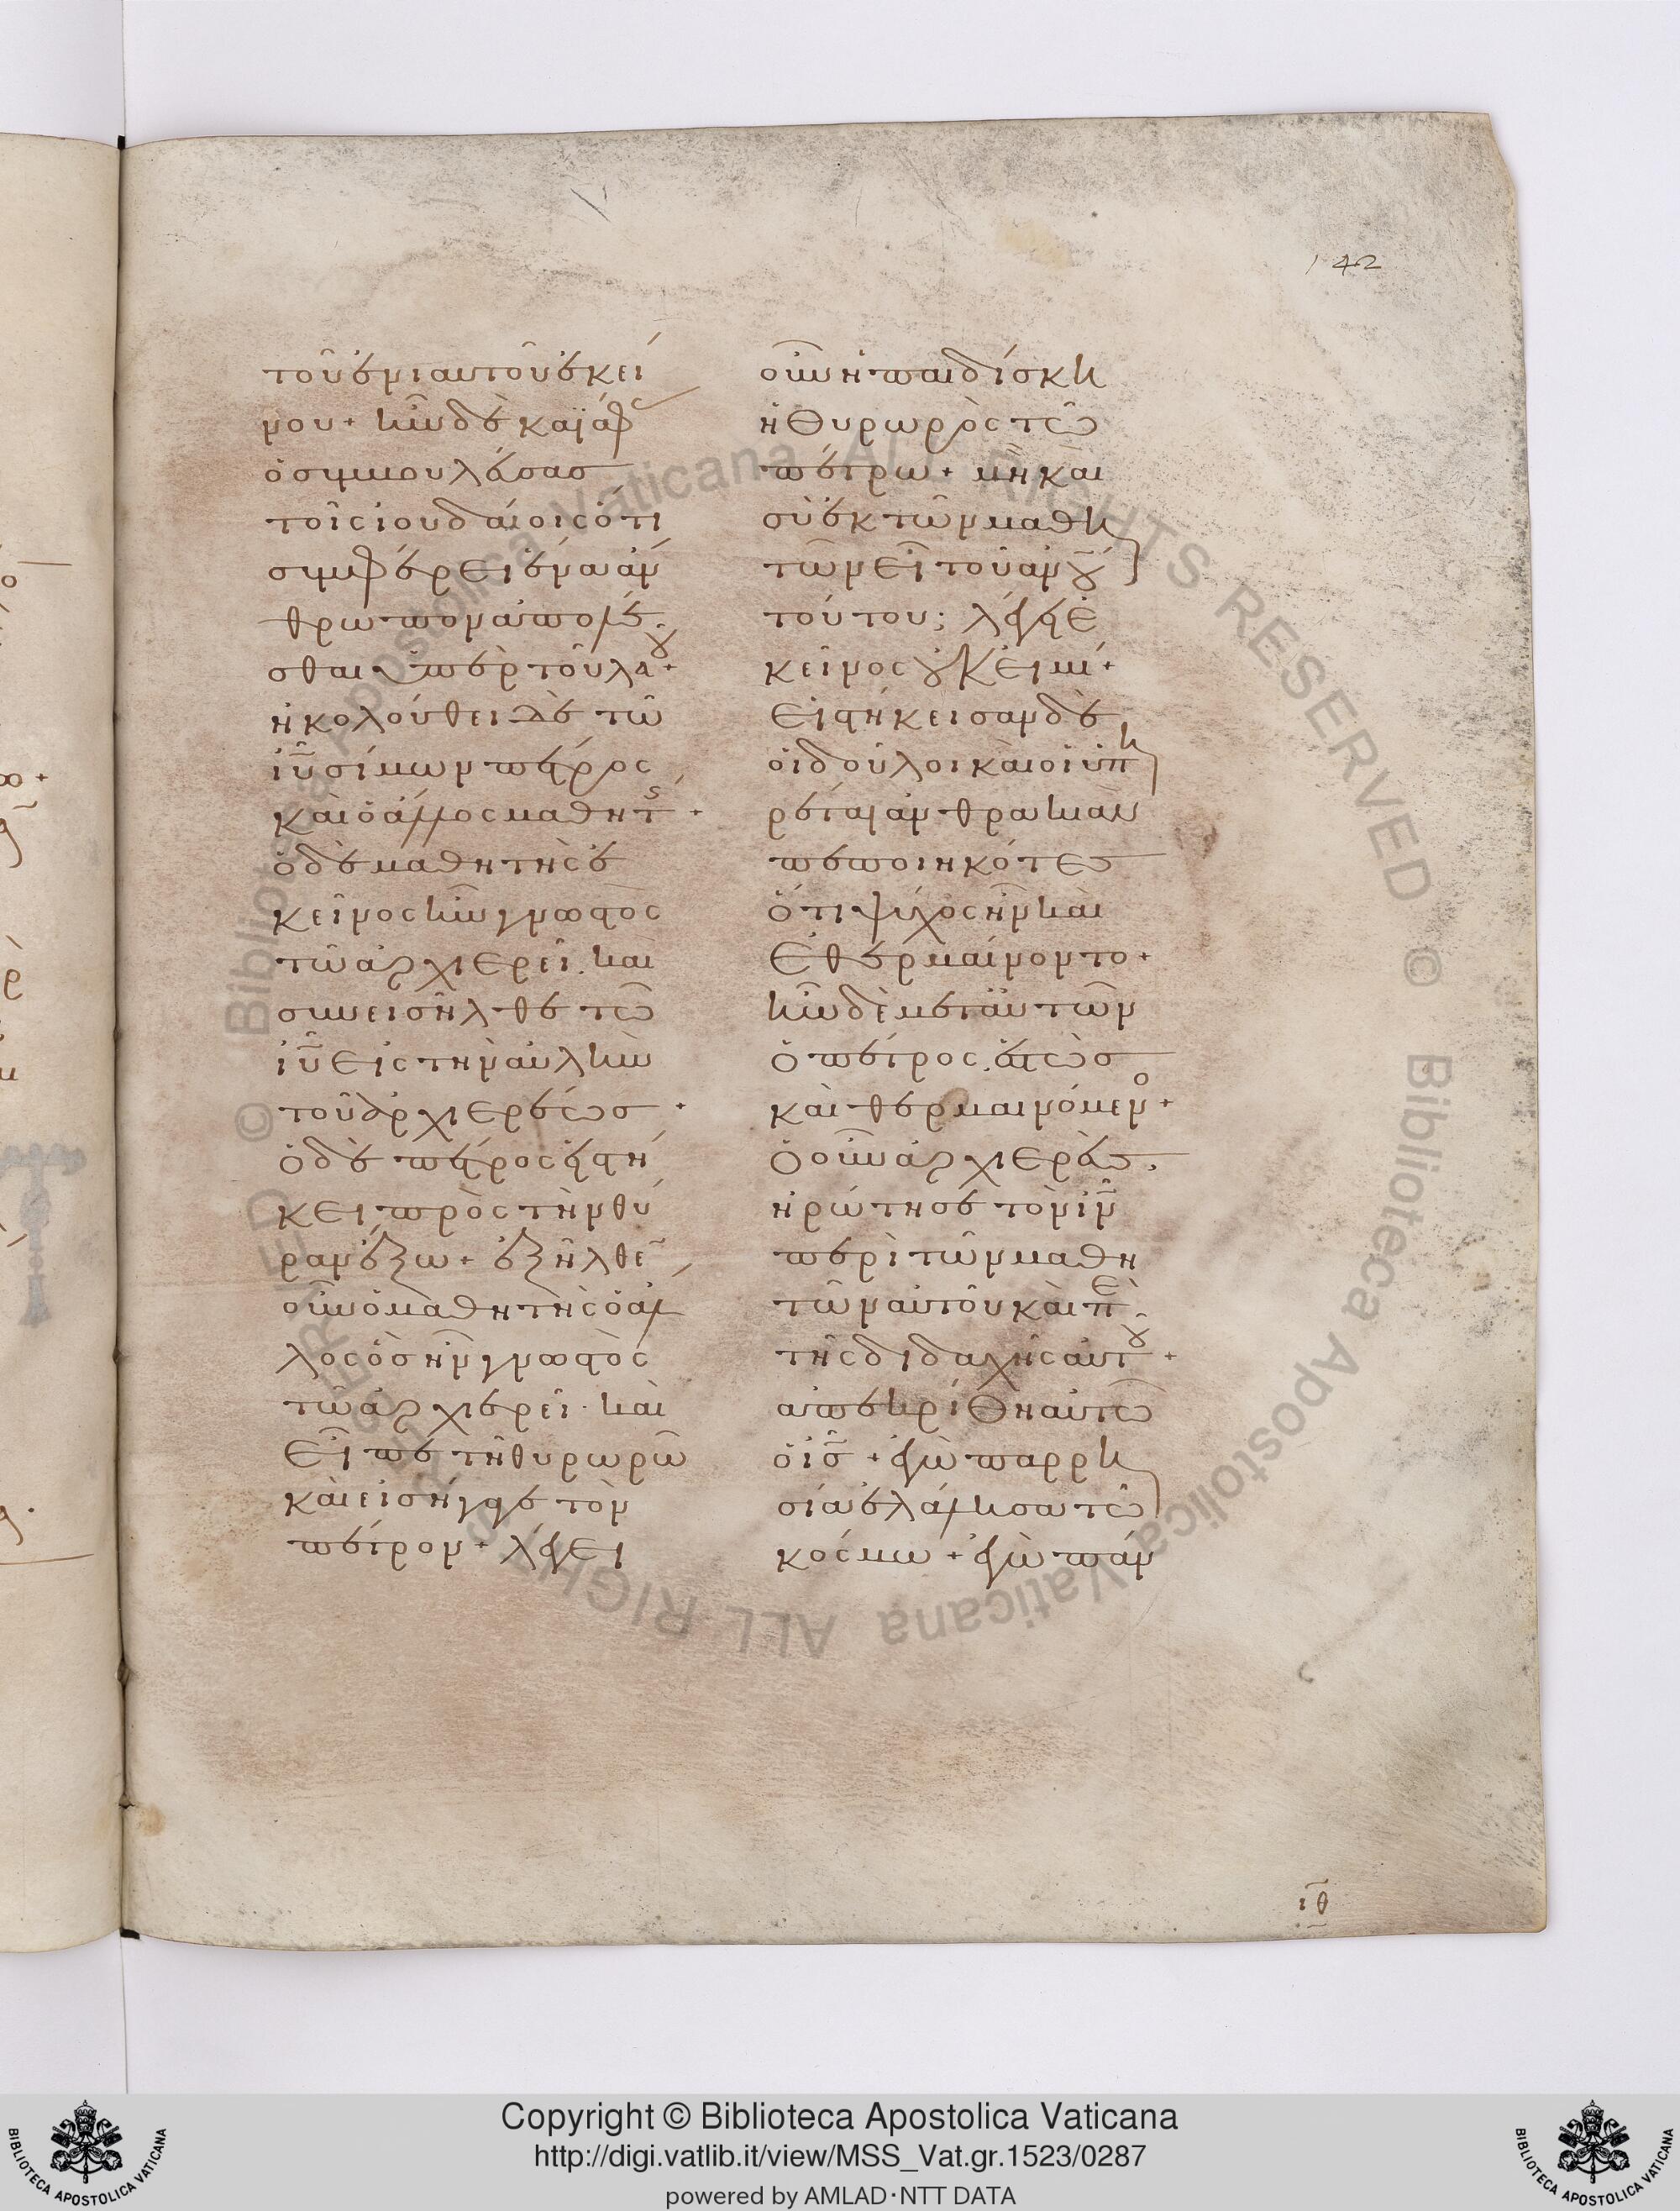 142
τοῦ ἐνιαυτοῦ ἐκεί
νου + ἦν δὲ καϊάφ
ὁ συμβουλεύσας
τοῖς ἰουδαίοις ὅτι
συμφέρει ἕνα ἄν
θρωπον ἀπολέ
σθαι ὑπὲρ τοῦ λαȣ +
ἠκολούθει δὲ τῶ
ἰῦ σίμων πέτρος
καὶ ὁ ἄλλος μαθητς +
ὁ δὲ μαθητὴς ἐ
κεῖνος ἦν γνωστὸς
τῶ ἀρχιερεῖ. καὶ
συνεισῆλθε τῶ
ἰῦ εἰς τὴν αὐλὴν
τοῦ ἀρχιερέως +
ὁ δὲ πέτρος εἱστή
κει πρὸς τὴν θύ
ραν ἔξω + ἐξῆλθε
οὖν ὁ μαθητὴς ὁ ἄλ
λος ὃς ἦν γνωστὸς
τῶ ἀρχιερεῖ. καὶ
εἶπε τῆ θυρωρῶ
καὶ εἰσήγαγε τὸν
πέτρον + λέγει
οὖν ἡ παιδίσκη
ἡ θυρωρὸς τῶ
πέτρω + μὴ καὶ
σὺ ἐκ τῶν μαθη
τῶν εἶ τοῦ ἀνȣ
τούτου; λέγει ἐ
κεῖνος ȣκ εἰμί +
εἱστήκεισαν δὲ
οἱ δοῦλοι καὶ οἱ ὑπη
ρέται ἀνθρακιὰν
πεποιηκότες
ὅτι ψύχος ἦν καὶ
ἐθερμαίνοντο +
ἦν δὲ μετ αὐτῶν
ὁ πέτρος ἑστὼς
καὶ θερμαινόμενο +
ὁ οὖν ἀρχιερεὺς.
ἠρώτησε τὸν ἰν
περὶ τῶν μαθη
τῶν αὐτοῦ καὶ πε
τῆς διδαχῆς αὐτȣ +
ἀπεκρίθη αὐτῶ
ὁ ἰς + ἐγὼ παρρη
σία ἐλάλησα τῶ
κόσμω + ἐγὼ πάν
ιθ
Copyright © Biblioteca Apostolica Vaticana
http://digi.vatlib.it/view/MSS_Vat.gr.1523/0287
powered by AMLAD·NTT DATA